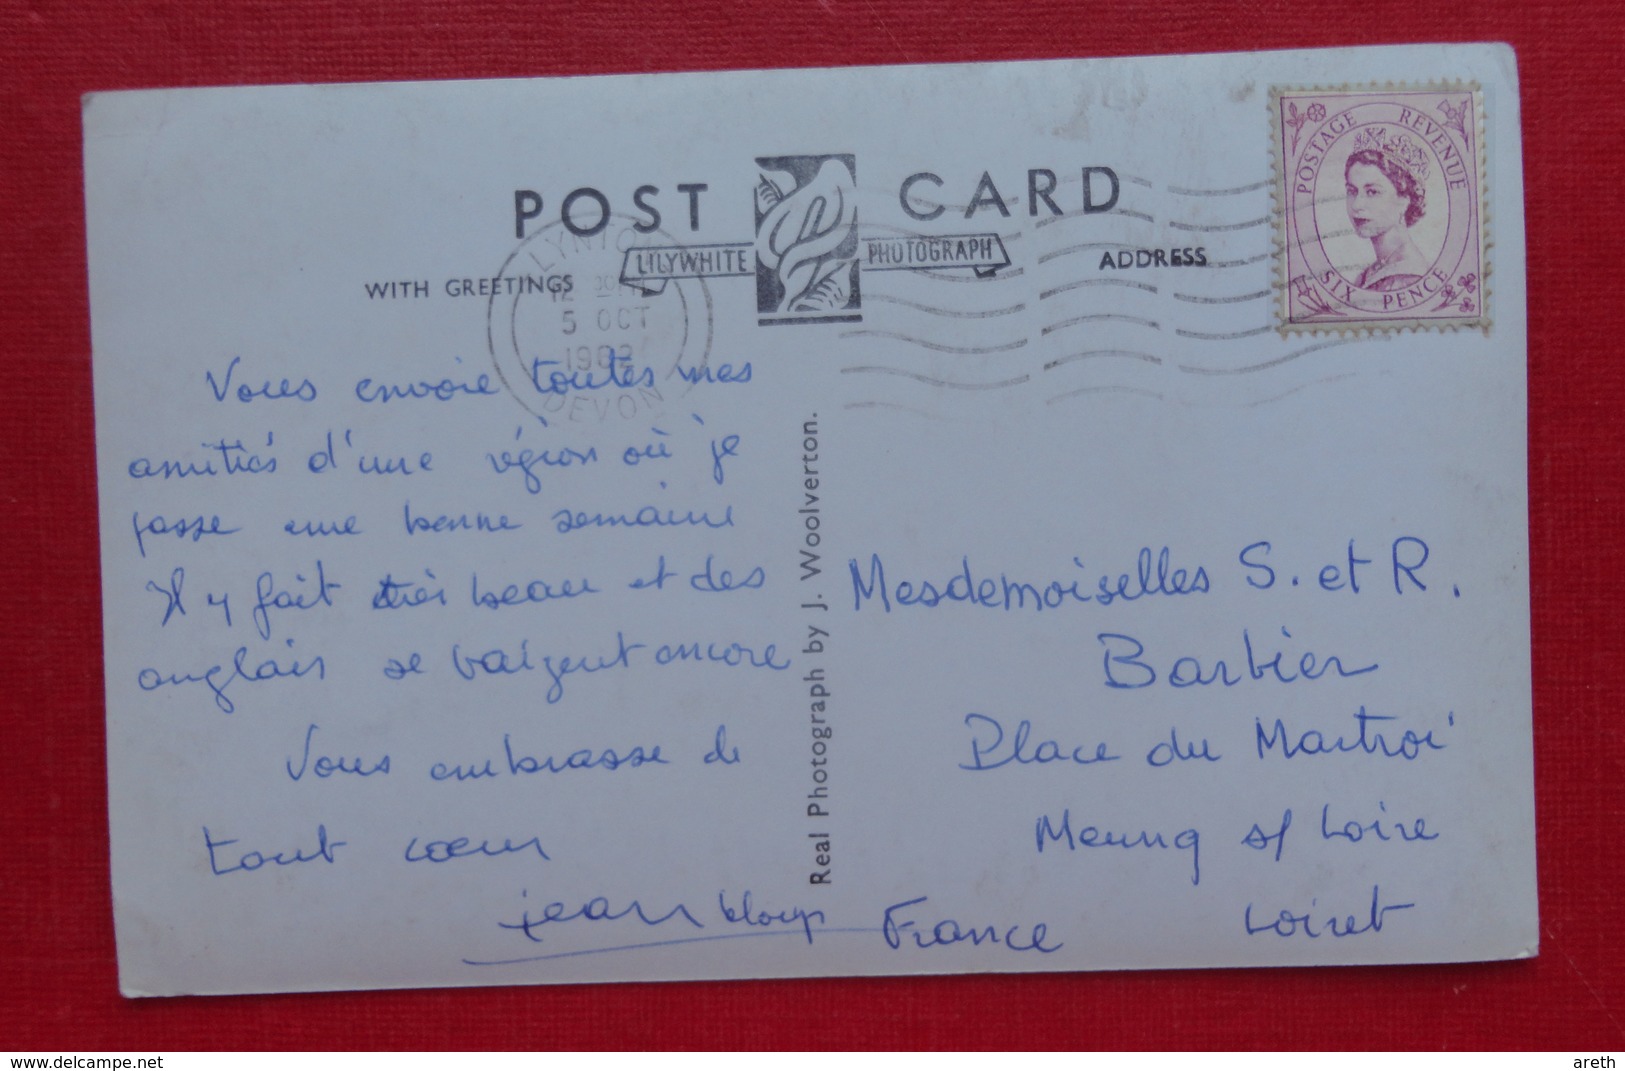 POST CARD
WITH GREETINGS
LILYWHITE PHOTOGRAPH
ADDRESS
POSTAGE REVENUE
SIX PENCE
LYNTON
5 OCT
DEVON
Vous envoie toutes mes
amitiés d'une région où je
passe une bonne semaine
Il y fait très beau et des
anglais se baignent encore
Vous embrasse de
tout cœur
jean
Real Photograph by J. Woolverton.
Mesdemoiselles S. et R.
Barbier
Place du Martroi
Meung s/ Loire
Loiret
France
www.delcampe.net
areth